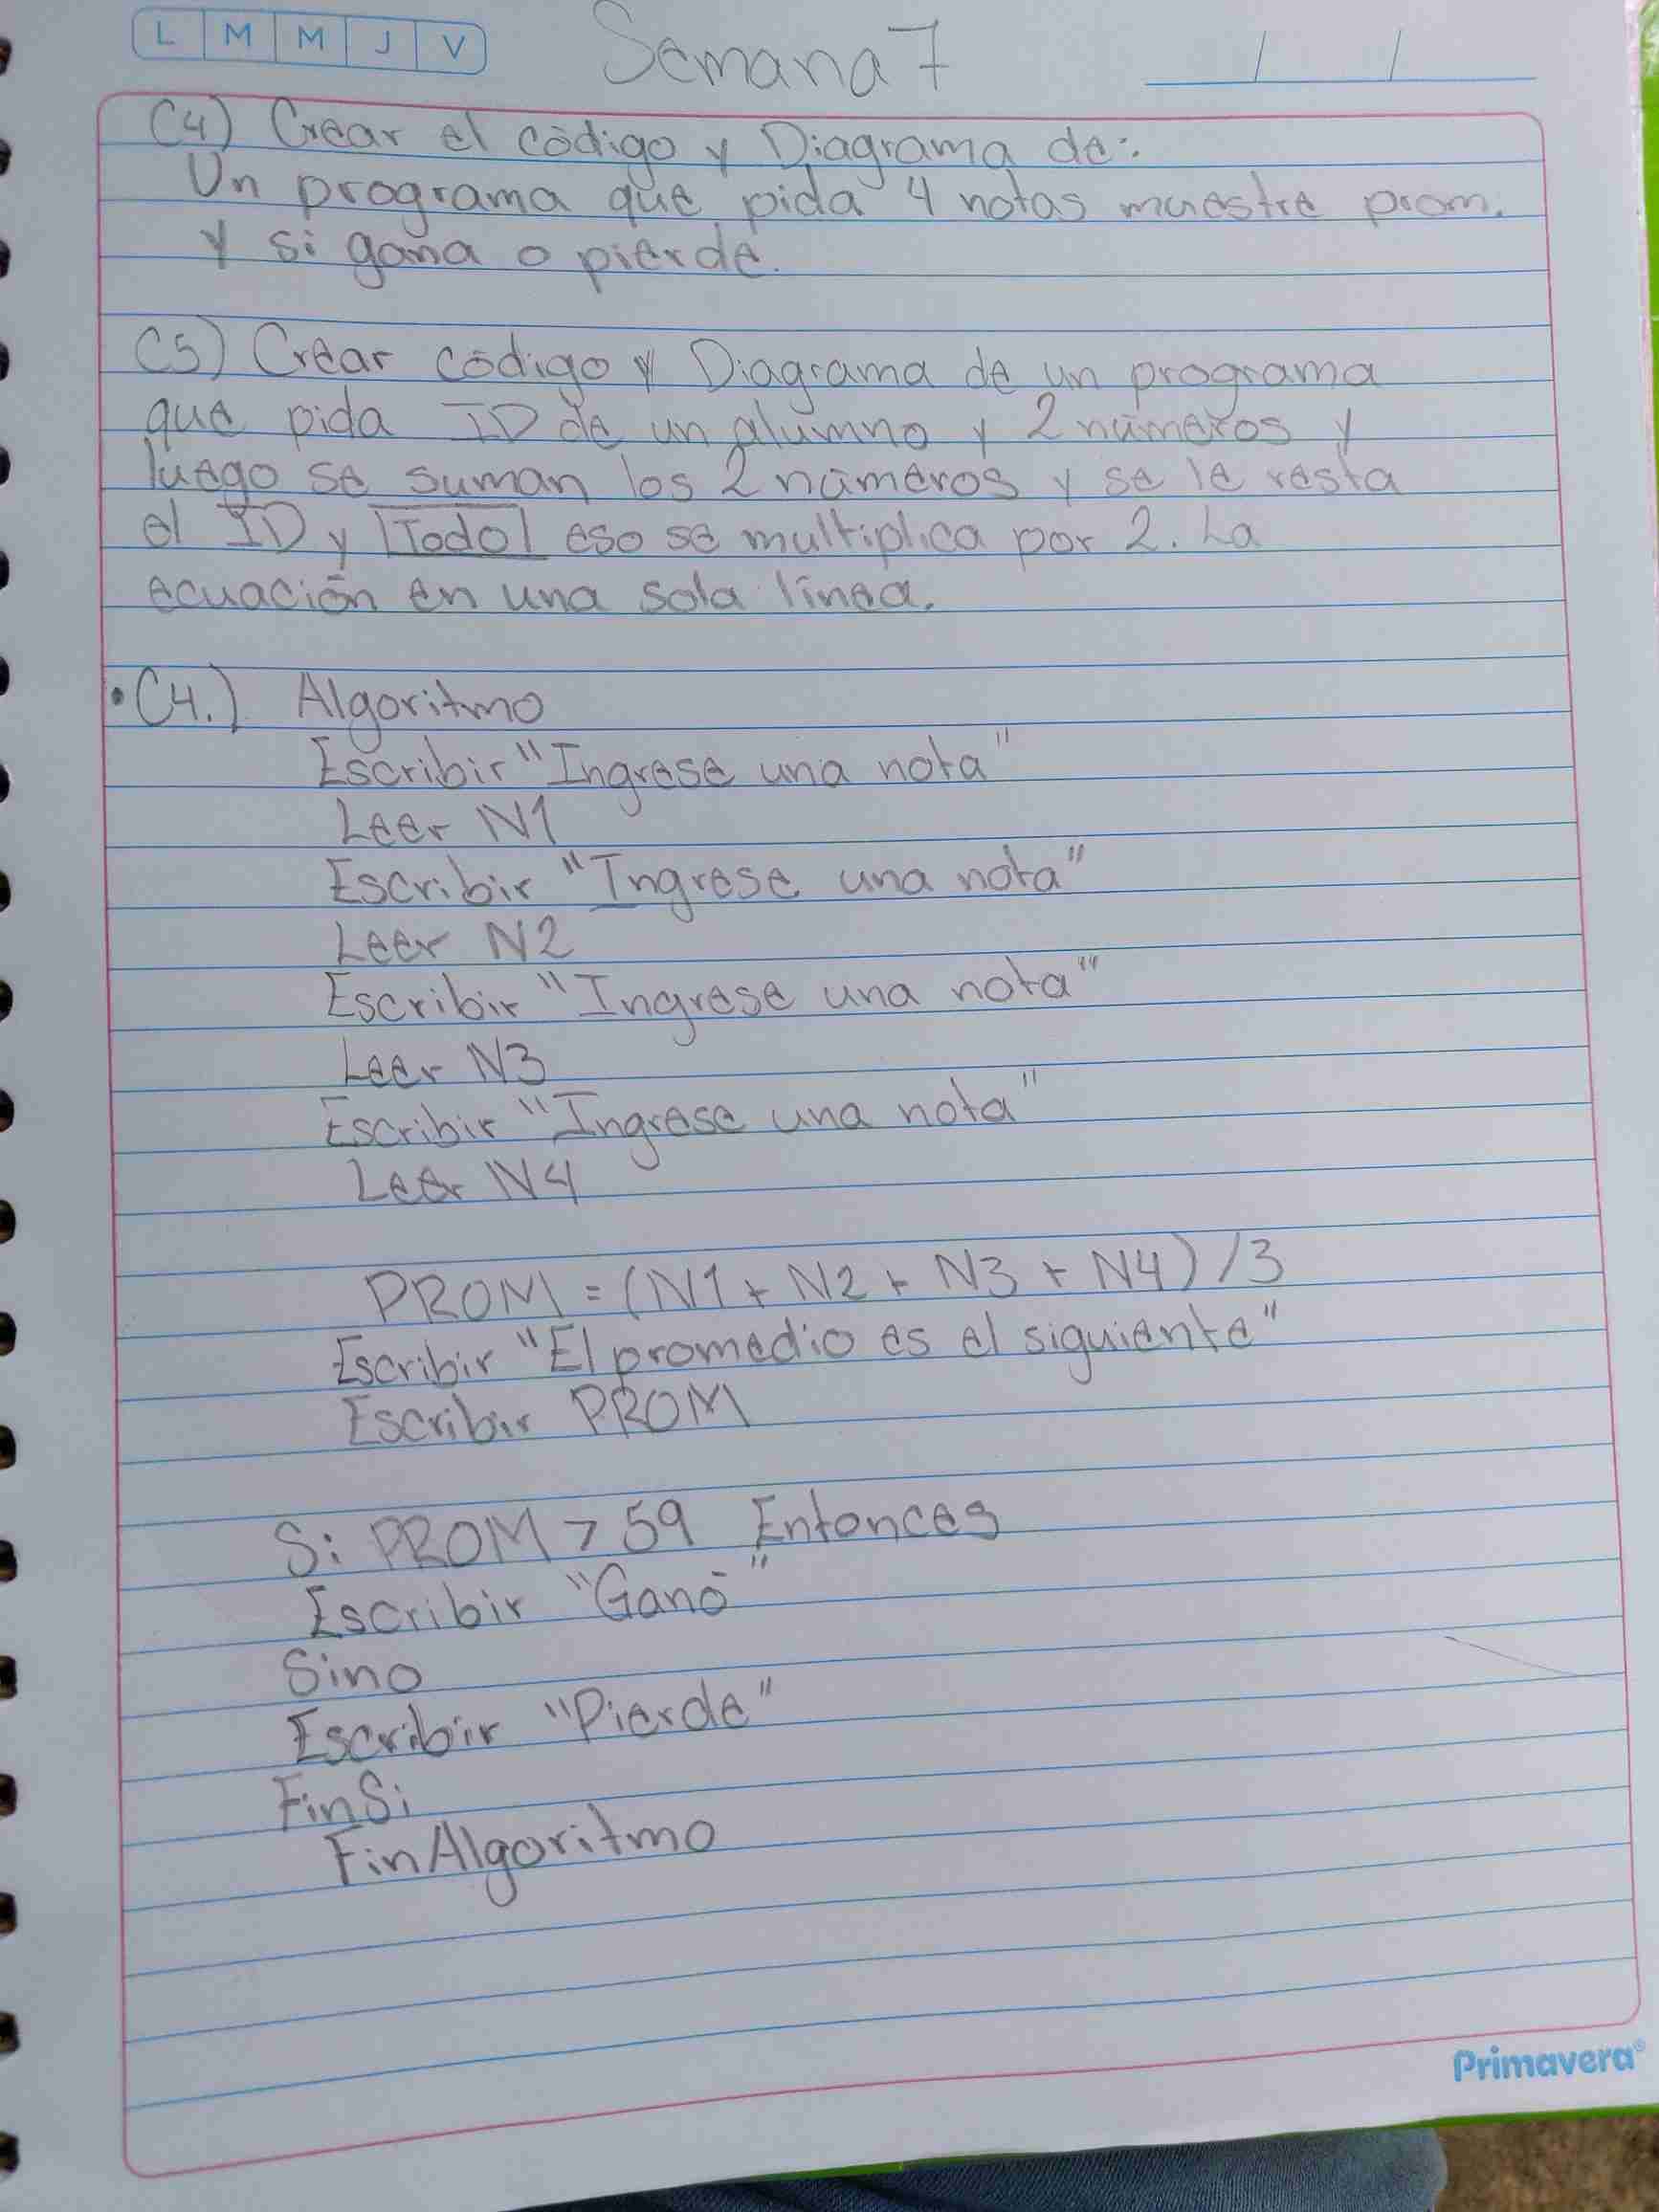 L M M J V
Semana 7
C4) Crear el código y Diagrama de:
Un programa que pida 4 notas muestre prom.
y si gana o pierde.
C5) Crear código y Diagrama de un programa
que pida ID de un alumno y 2 números y
luego se suman los 2 números y se le resta
el ID y |Todo| eso se multiplica por 2. La
ecuación en una sola línea.
•C4.) Algoritmo
Escribir "Ingrese una nota"
Leer N1
Escribir "Ingrese una nota"
Leer N2
Escribir "Ingrese una nota"
Leer N3
Escribir "Ingrese una nota"
Leer N4
PROM = (N1 + N2 + N3 + N4) /3
Escribir "El promedio es el siguiente"
Escribir PROM
Si PROM > 59 Entonces
Escribir "Ganó"
Sino
Escribir "Pierde"
FinSi
FinAlgoritmo
Primavera®